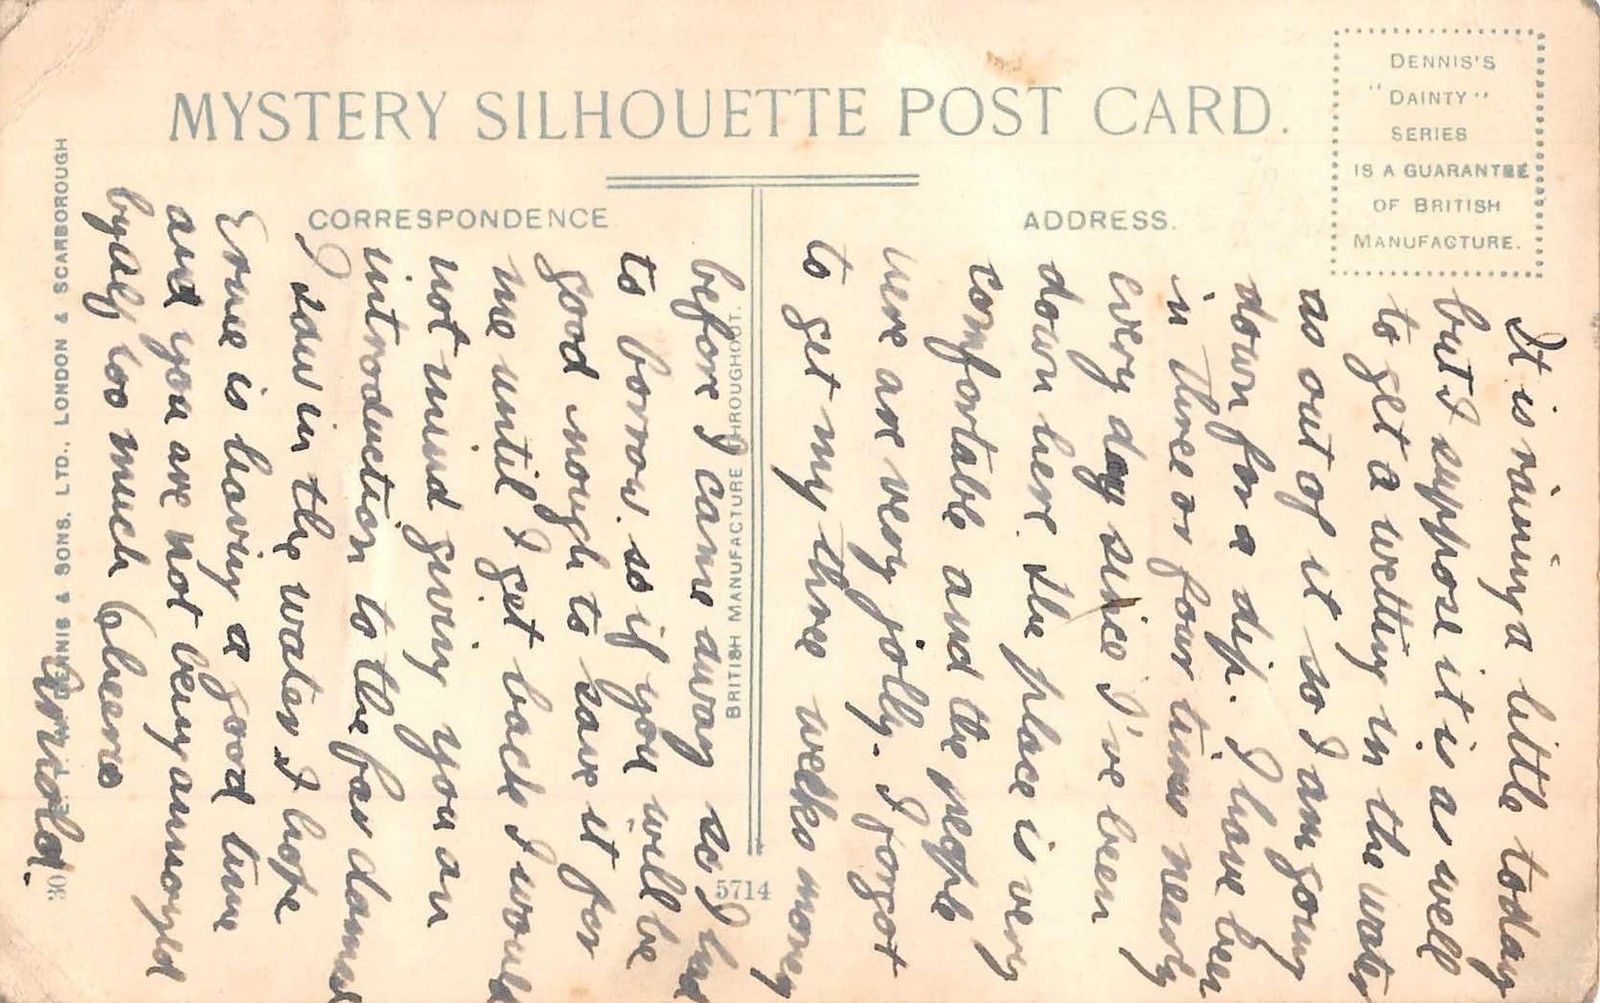 MYSTERY SILHOUETTE POST CARD.
CORRESPONDENCE
ADDRESS.
DENNIS'S
"DAINTY"
SERIES
IS A GUARANTEE
OF BRITISH
MANUFACTURE.
E. T. W. DENNIS & SONS, LTD., LONDON & SCARBOROUGH
BRITISH MANUFACTURE THROUGHOUT.
5714
30
It is raining a little today
but I suppose it is as well
to get a wetting in the water
as out of it so I am going
down for a dip. I have been
in three or four times nearly
every day since I've been
down here. The place is very
comfortable and the people
here are very jolly. I forgot
to get my three weeks money
before I came away so I had
to borrow. so if you will be
good enough to save it for
me until I get back I would
not mind giving you an
introduction to the fair damsel
I saw in the water. I hope
Ernie is having a good time
and you are not being annoyed
by Galy too much Cheerio
Arnold.